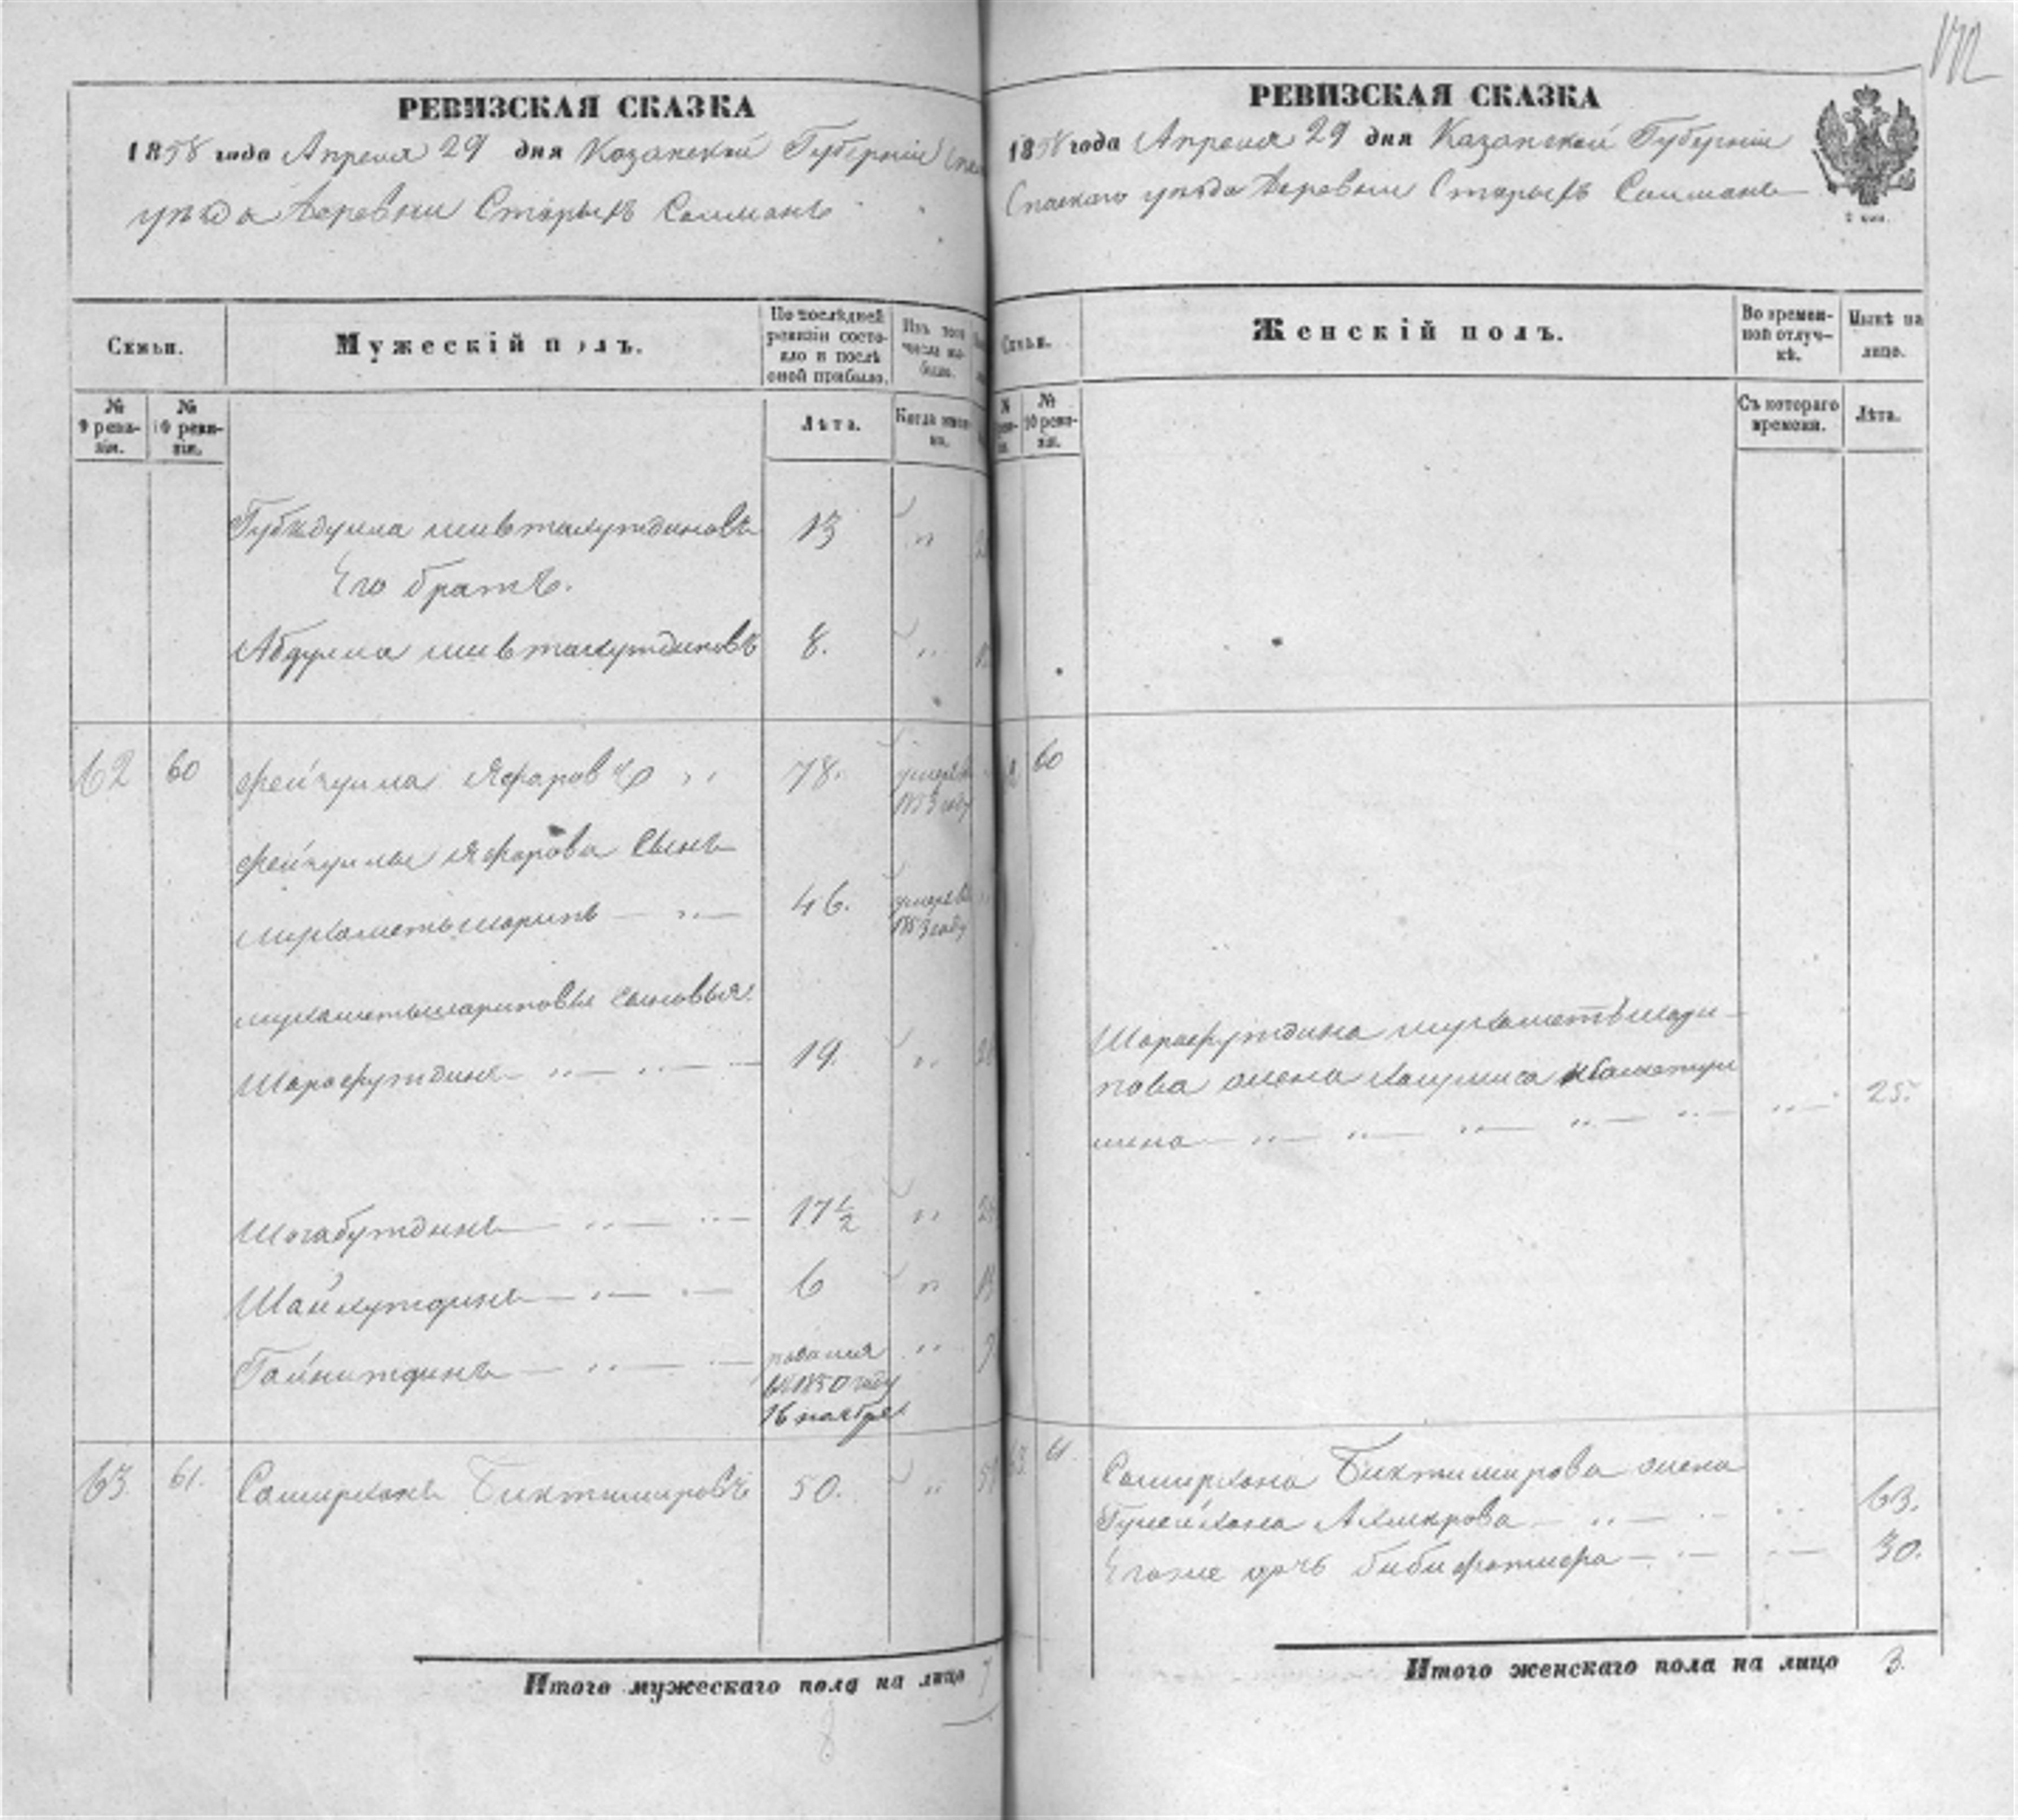 172
РЕВИЗСКАЯ СКАЗКА
1858 года Апреля 29 дня Казанской Губернии
уезда деревни Старыхъ Салманъ
Семьи.
Мужескій полъ.
По послѣдней ревизіи состояло и послѣ оной прибыло.
Изъ того числа выбыло.
№ 9 ревизіи.
№ 10 ревизіи.
Лѣта.
Когда именно.
Губидулла Мивтахутдиновъ 13 "
Его братъ.
Абдулла Мивтахутдиновъ 8. "
62 60 Фейзулла Яфаровъ " 78. умеръ въ 1853 году
Фейзуллы Яфарова сынъ
Мухаметьшарипъ — " — 46. умеръ въ 1853 году
Мухаметьшариповы сыновья:
Шарафутдинъ — " — " — 19. "
Шагабутдинъ — " — " — 17 1/2 "
Шайхутдинъ — " — " — 6 "
Гайнитдинъ — " — " —
родился
въ 1850 году
16 ноября
"
63. 61. Самирханъ Биктимировъ 50. "
Итого мужескаго пола на лицо 7
8
РЕВИЗСКАЯ СКАЗКА
1858 года Апреля 29 дня Казанской Губернии
Спаскаго уезда деревни Старыхъ Салманъ
2 коп.
Семьи.
Женскій полъ.
Во временной отлучкѣ.
Нынѣ на лицо.
№ 10 ревизіи.
Съ котораго времени.
Лѣта.
60
Шарафутдина Мухаметьшари-
пова жена
— " — " — " — " — " — 25.
63. 61. Самирхана Биктимирова жена
Гулейхана — " — " 63.
Егоже дочь Бибифатиефа — " — 30.
Итого женскаго пола на лицо 3.